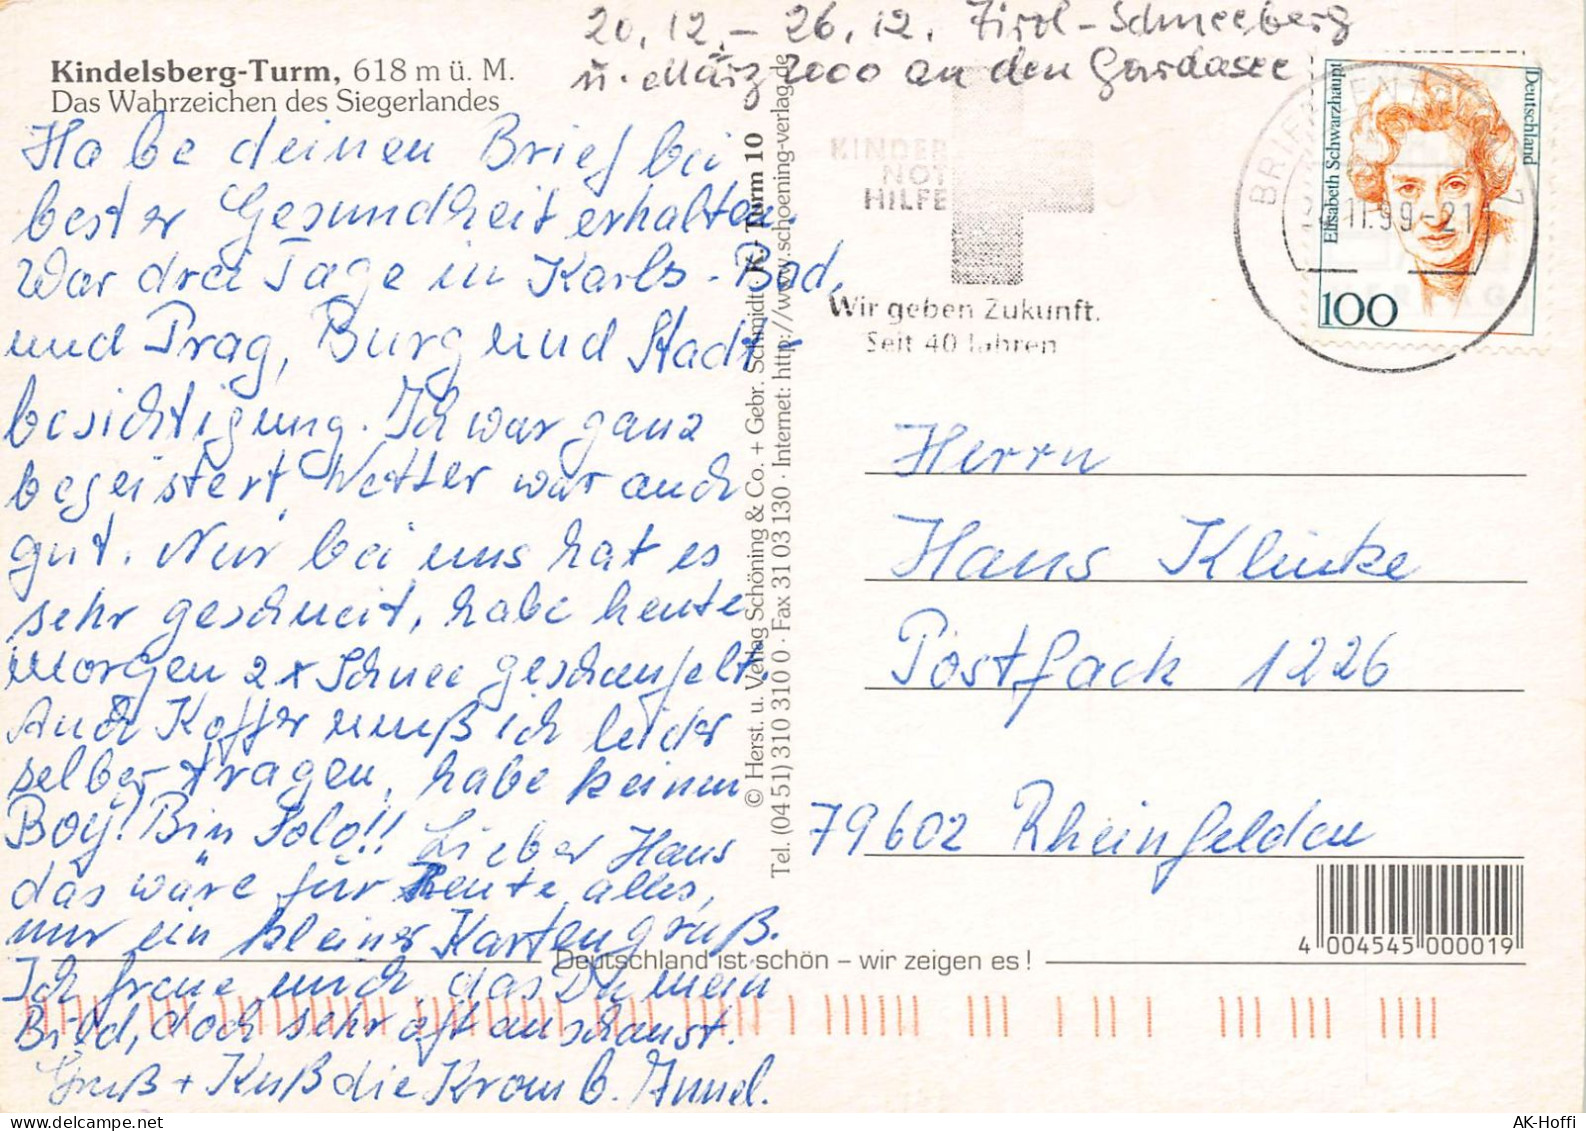 20.12.- 26.12. Tirol-Schneeberg
u. März 2000 an den Gardasee
Kindelsberg-Turm, 618 m ü. M.
Das Wahrzeichen des Siegerlandes
Habe deinen Brief bei
bester Gesundheit erhalten.
War drei Tage in Karls-Bad,
und Prag, Burg und Stadt-
besichtigung. Ich war ganz
begeistert, Wetter war auch
gut. Nur bei uns hat es
sehr geschneit, habe heute
Morgen 2x Schnee geschaufelt.
Auch Koffer muß ich leider
selber tragen, habe keinen
Boy! Bin Solo!! Lieber Hans
das wäre für heute alles,
nur ein kleiner Kartengruß.
Ich freue mich das Du mein
Bild, doch sehr oft anschaust.
Gruß + Kuß die Annel.
© Herst. u. Verlag Schöning & Co. + Gebr. Schmidt · Turm 10
Tel. (04 51) 310 310 0 · Fax 31 03 130 · Internet: http://www.schoening-verlag.de
KINDER
NOT
HILFE
Wir geben Zukunft.
Seit 40 Jahren
BRIEFZENTRUM
11.99-21
Elisabeth Schwarzhaupt
Deutschland
100
Herrn
Hans Klinke
Postfach 1226
79602 Rheinfelden
4 004545 000019
Deutschland ist schön – wir zeigen es!
AK-Hoffi